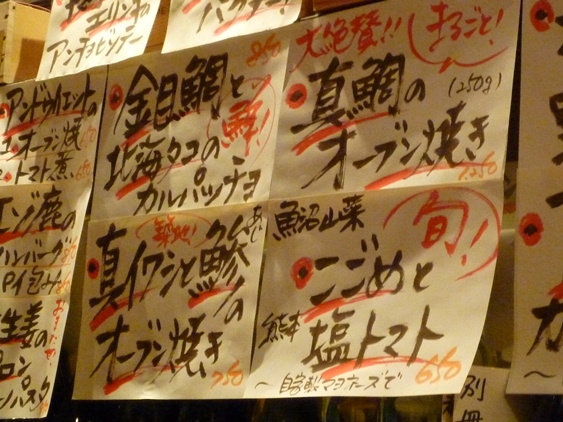 エリンギの
アンチョビソテー
パクチー!
アンドゥイエットの
オーブン焼
トマト煮
650
エゾ鹿の
ハンバーグ
パイ包み
生姜の
850
金目鯛と
鮮!
北海タコの
カルパッチョ
大絶賛!!
まるごと!
真鯛の
(250g)
オーブン焼き
1,250
築地!
真イワシと鯵の
オーブン焼き
750
魚沼山菜
旬!
こごめと
熊本
塩トマト
〜自家製マヨネーズで
650
別冊